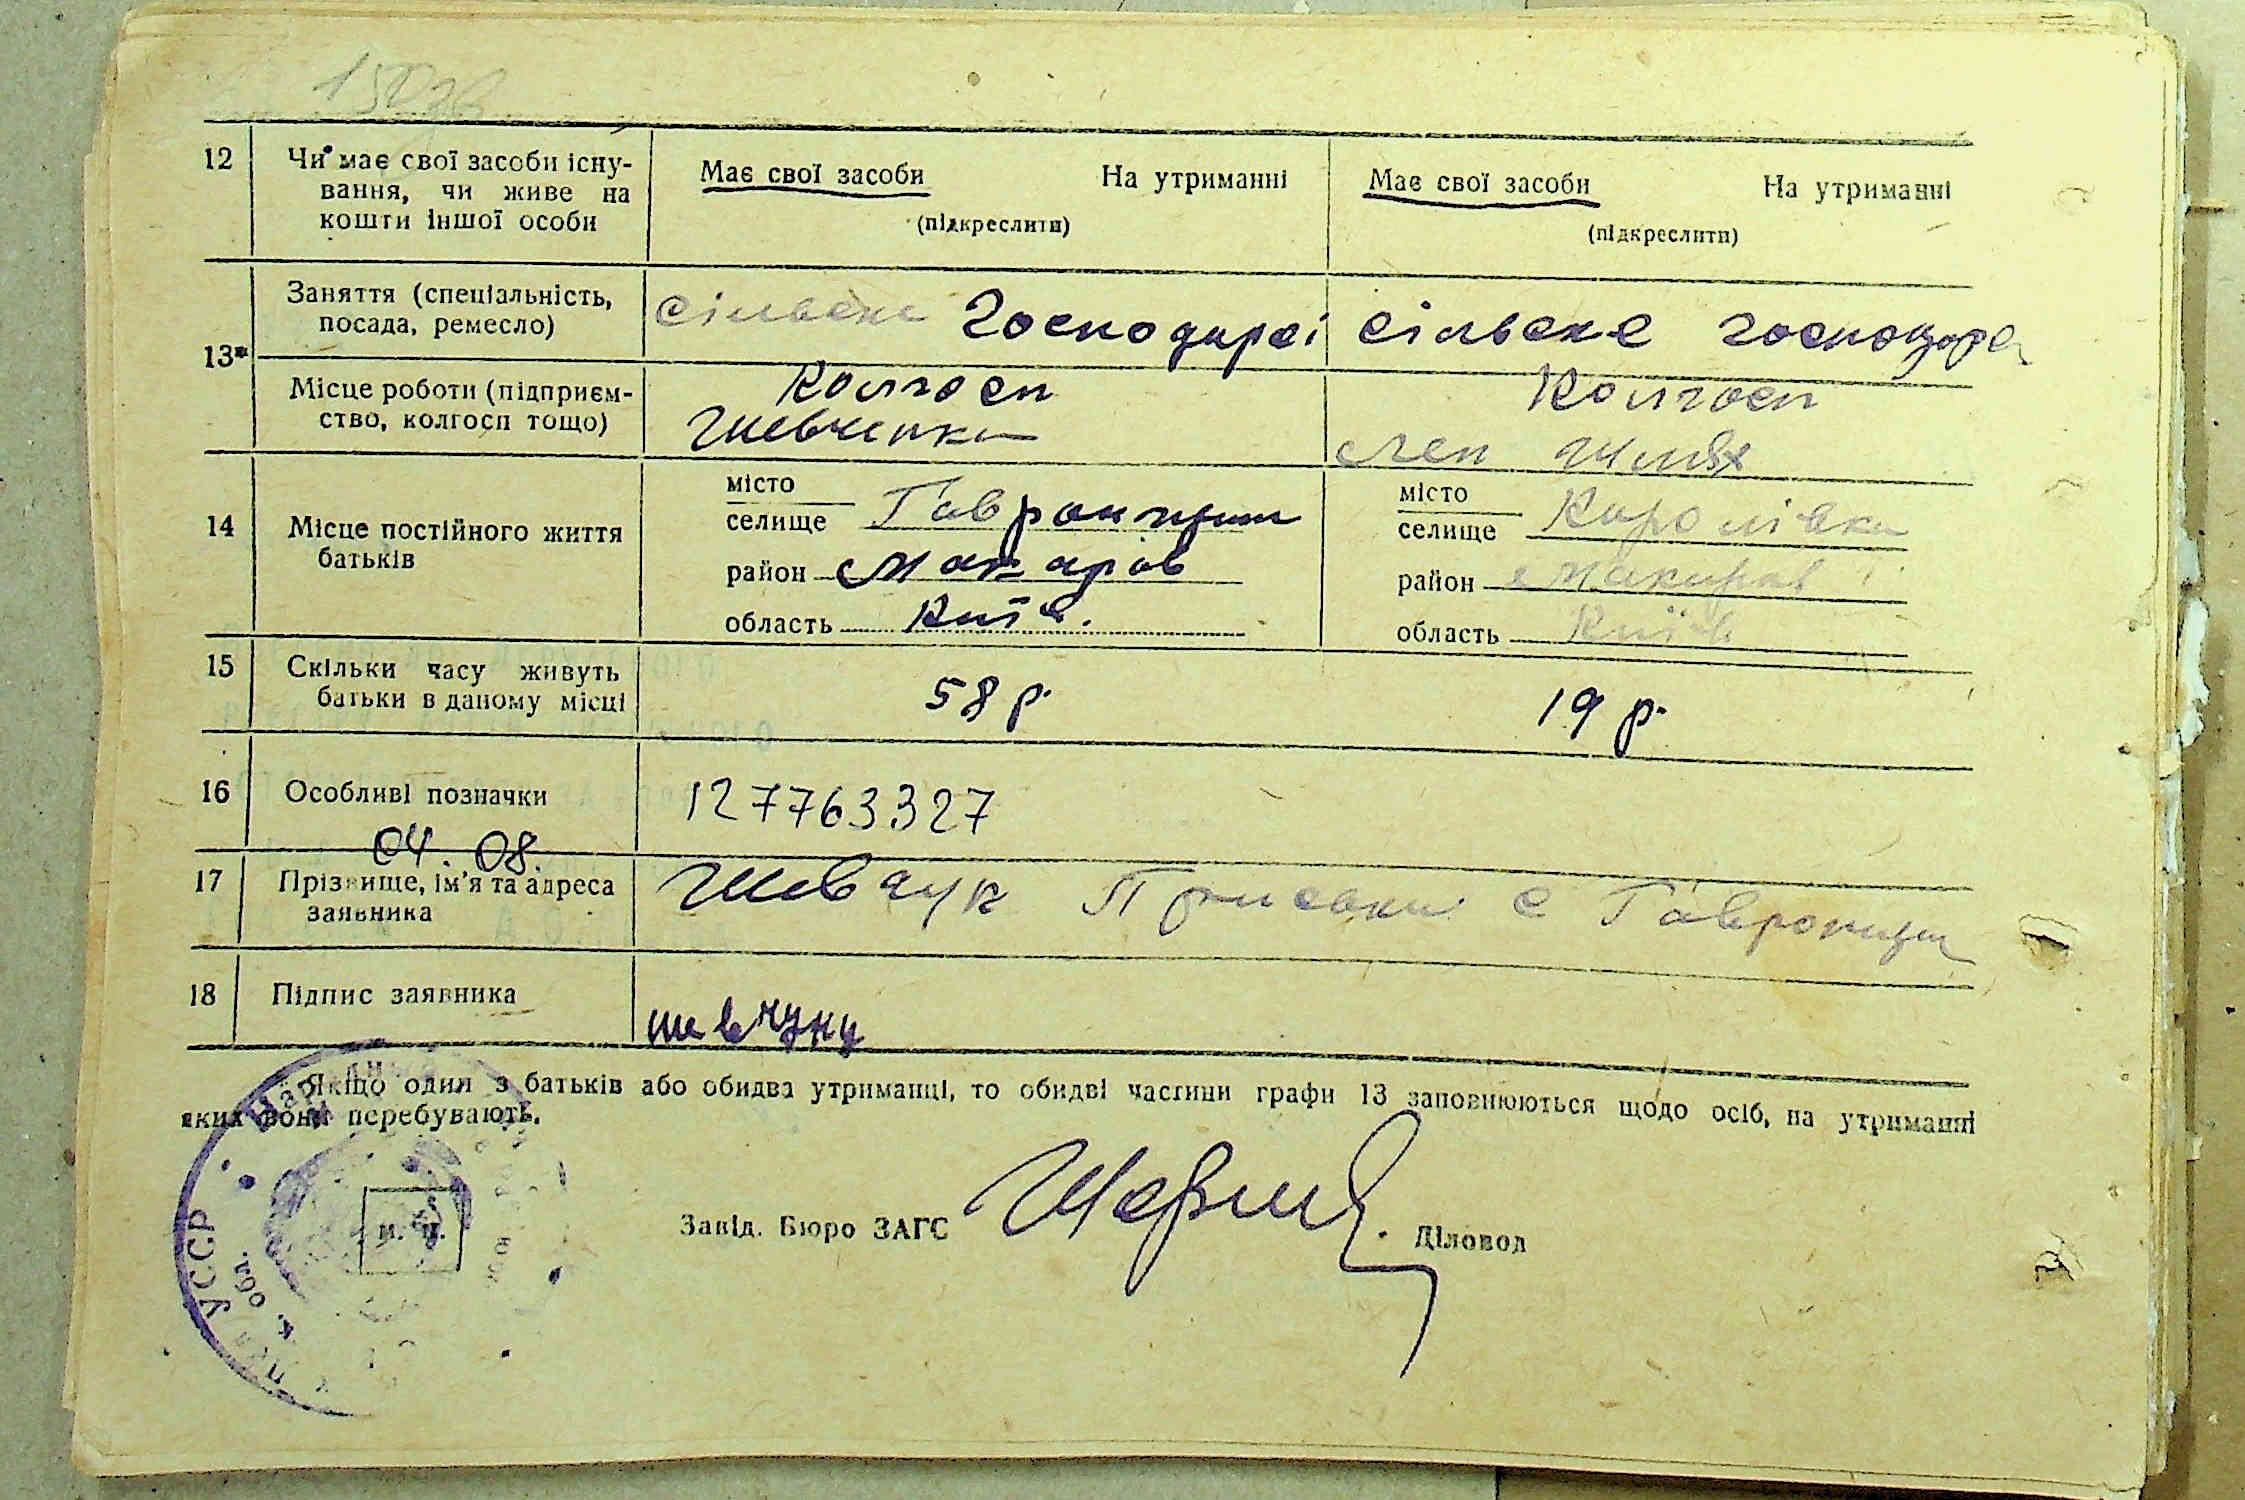 12
Чи має свої засоби існу-
вання, чи живе на
кошти іншої особи
Має свої засоби На утриманні
(підкреслити)
Має свої засоби На утриманні
(підкреслити)
13*
Заняття (спеціальність,
посада, ремесло)
сільске Господарсі
сільске господарс
Місце роботи (підприєм-
ство, колгосп тощо)
Колгосп
Шевченка
Колгосп
Лен шлях
14
Місце постійного життя
батьків
місто
селище Гавронщин
район Макарів
область Київ.
місто
селище Королівка
район Макарів
область Київ
15
Скільки часу живуть
батьки в даному місці
58 р.
19 р.
16
Особливі позначки
127763327
04. 08.
17
Прізвище, ім'я та адреса
заявника
Шевчук с Гавронщи
18
Підпис заявника
шевчуку
Якщо один з батьків або обидва утриманці, то обидві частини графи 13 заповнюються щодо осіб, на утриманні
яких вони перебувають.
УССР
обл.
м. п.
Завід. Бюро ЗАГС
Діловод